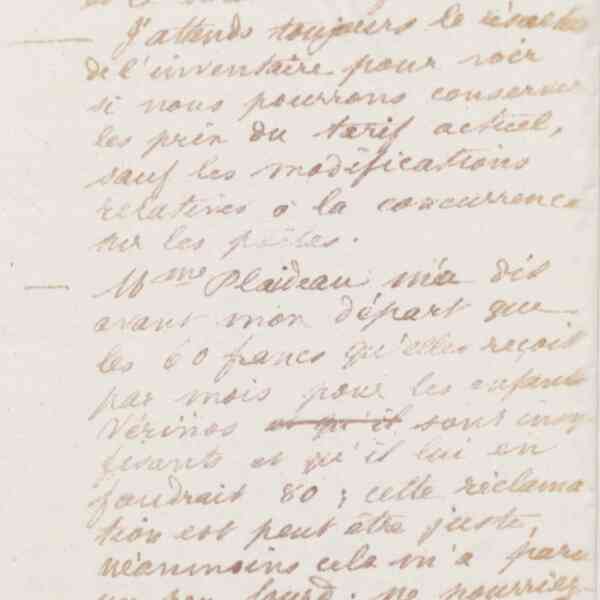 J'attends toujours le résultat
de l'inventaire pour voir
si nous pourrons conserver
les prix du tarif actuel,
sauf les modifications
relatives à la concurrence
sur les poêles.
— Mme Plaideau m'a dit
avant mon départ que
les 60 francs qu'elles reçoit
par mois pour les enfants
sont insuf
fisants et qu'il lui en
faudrait 80 ; cette réclama
tion est peut être juste,
néanmoins cela m'a paru
un peu lourd. ne pourriez-